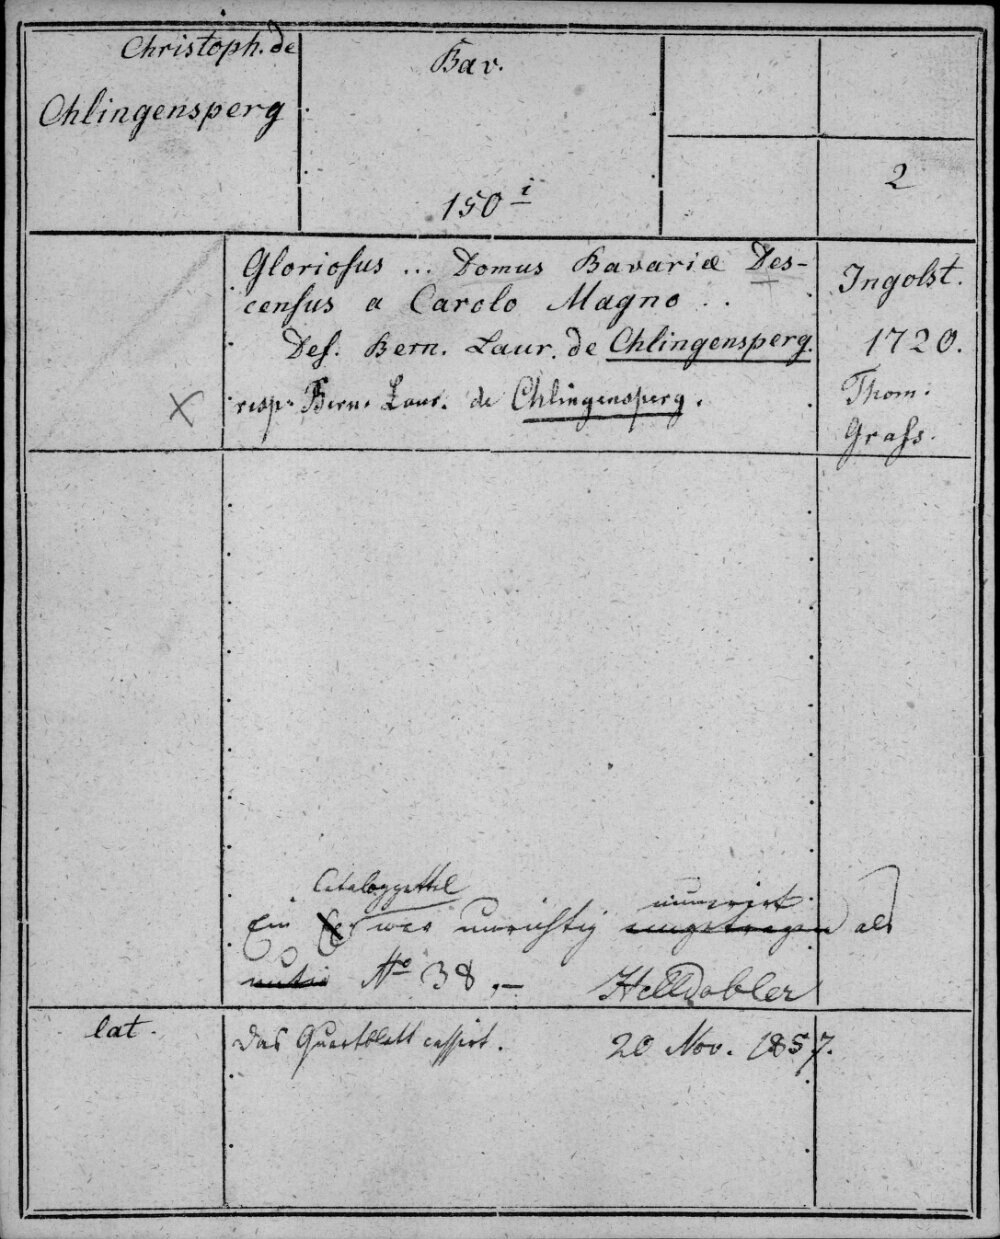 Christoph. de
Chlingensperg
Bav.
150 i
2
Gloriosus ... Domus Bavariæ Des-
census a Carolo Magno ..
Def. Bern. Laur. de Chlingensperg.
resp. Bern. Laur. de Chlingensperg.
Ingolst.
1720.
Thom.
Grass.
X
Catalogzettel
Ein war unrichtig numerirt als
No 38,-
Helldobler
lat.
Das Quartblatt cassirt. 20 Nov. 1857.